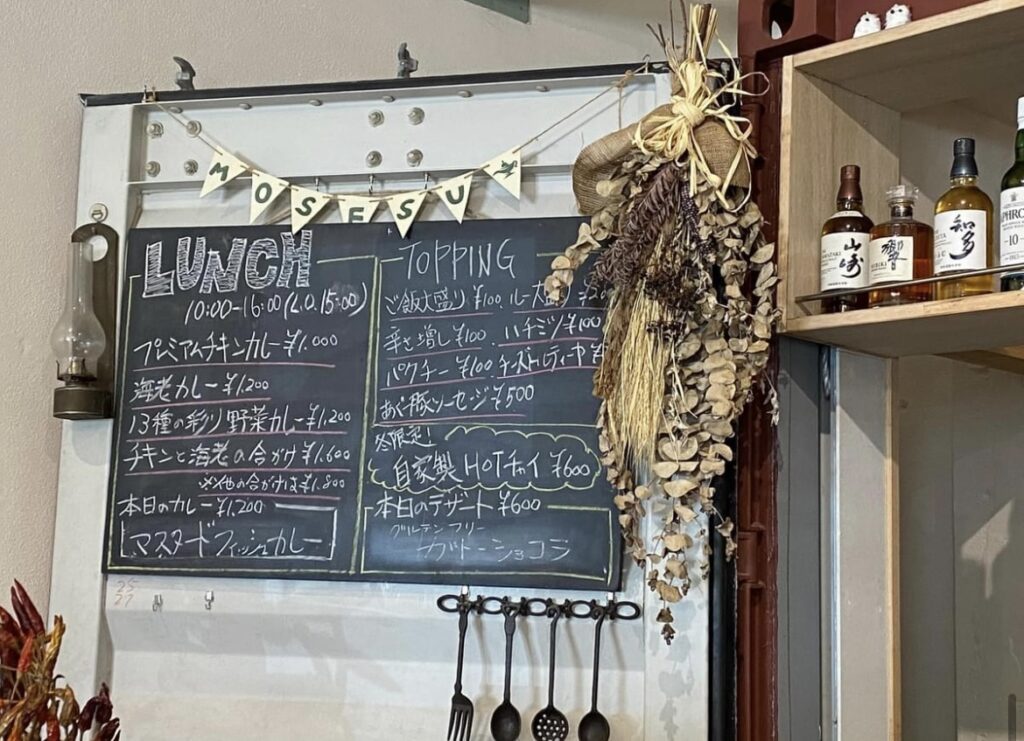 MOSESU
LUNCH
10:00-16:00(L.O.15:00)
プレミアムチキンカレー¥1.000
海老カレー¥1,200
13種の彩り野菜カレー¥1,200
チキンと海老の合がけ¥1.600
※他の合がけは¥1.800
本日のカレー¥1,200
マスタードフィッシュカレー
TOPPING
ご飯大盛り¥100、ルー大盛り
辛さ増し¥100、ハチミツ¥100
パクチー¥100、チーズトッピング
あぐー豚ソーセージ¥500
冬限定!
自家製HOTチャイ¥600
本日のデザート¥600
グルテンフリー
ガトーショコラ
25
27
山崎
響
知多
10